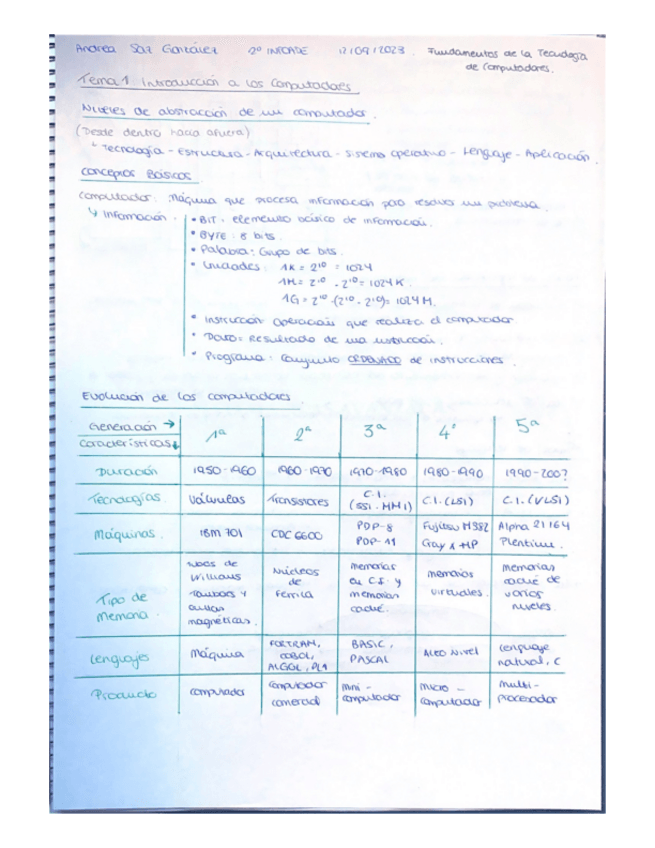 Andrea Saz González 2º INFOADE 12/09/2023 Fundamentos de la Tecnología
de Computadores.
Tema 1 Introducción a los Computadores
Niveles de abstracción de un computador.
(Desde dentro hacia afuera)
Tecnología - Estructura - Arquitectura - Sistema operativo - Lenguaje - Aplicación.
Conceptos Básicos
Computador: Máquina que procesa información para resolver un problema.
Información.
• BIT: elemento básico de información.
• BYTE: 8 bits.
• Palabra: Grupo de bits.
• Unidades: 1K = 2¹⁰ = 1024
1M = 2¹⁰ . 2¹⁰ = 1024 K.
1G = 2¹⁰ . (2¹⁰ . 2¹⁰) = 1024 M.
• Instrucción: Operaciones que realiza el computador
• Dato = Resultado de una instrucción.
• Programa: Conjunto ORDENADO de instrucciones.
Evolución de los computadores.
Generación → 1ª 2ª 3ª 4ª 5ª
Características ↓
Duración 1950-1960 1960-1970 1970-1980 1980-1990 1990-200?
Tecnologías Válvulas Transistores C.I. (SSI-MMI) C.I. (LSI) C.I. (VLSI)
Máquinas. IBM 701 CDC 6600 PDP-8 PDP-11 Fujitsu M382 Alpha 21164
Tipo de Memoria Tubos de Williams Tambores y magnéticas. Núcleos de Ferrita Memorias en C.I. y memorias caché. memorias virtuales. memorias caché de varios niveles.
Lenguajes Máquina FORTRAN, COBOL, ALGOL, PL1 BASIC, PASCAL Alto Nivel Lenguaje natural, C
Producto computador computador comercial mini-computador micro-computador multi-procesador